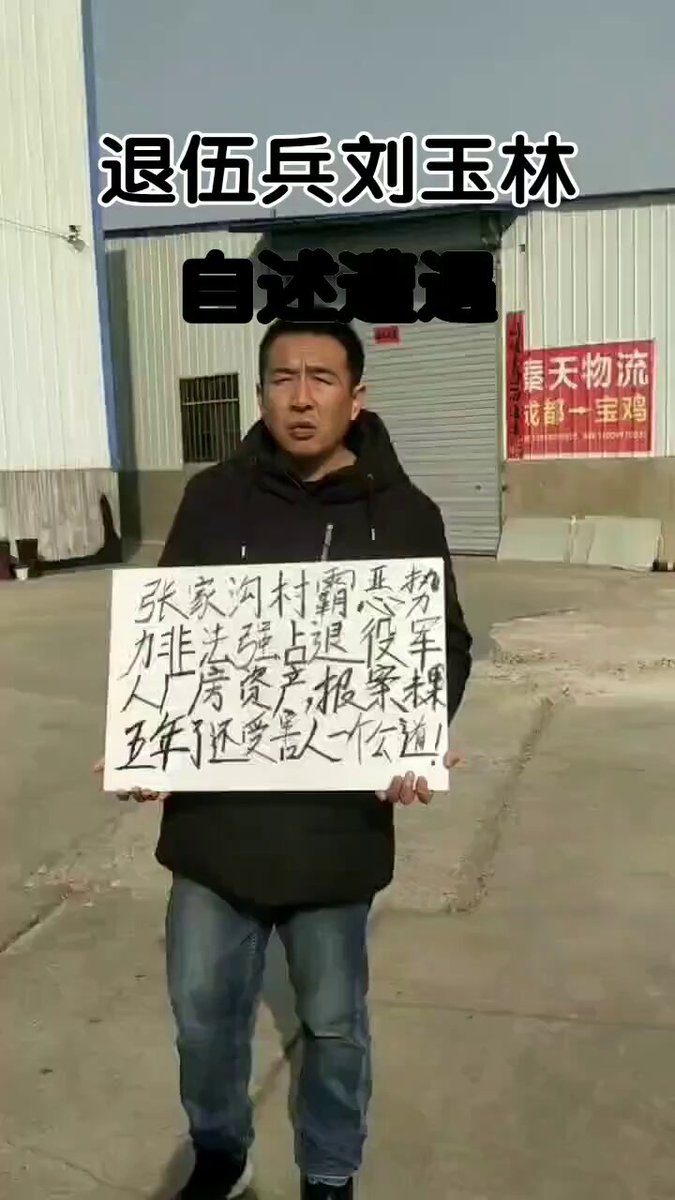 退伍兵刘玉林
自述遭遇
秦天物流
成都→宝鸡
张家沟村霸恶势
力非法强占退役军
人厂房资产,报案
五年了还受害人一个公道!